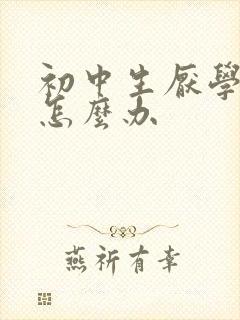 初中生厌學
怎麼办
燕祈有幸